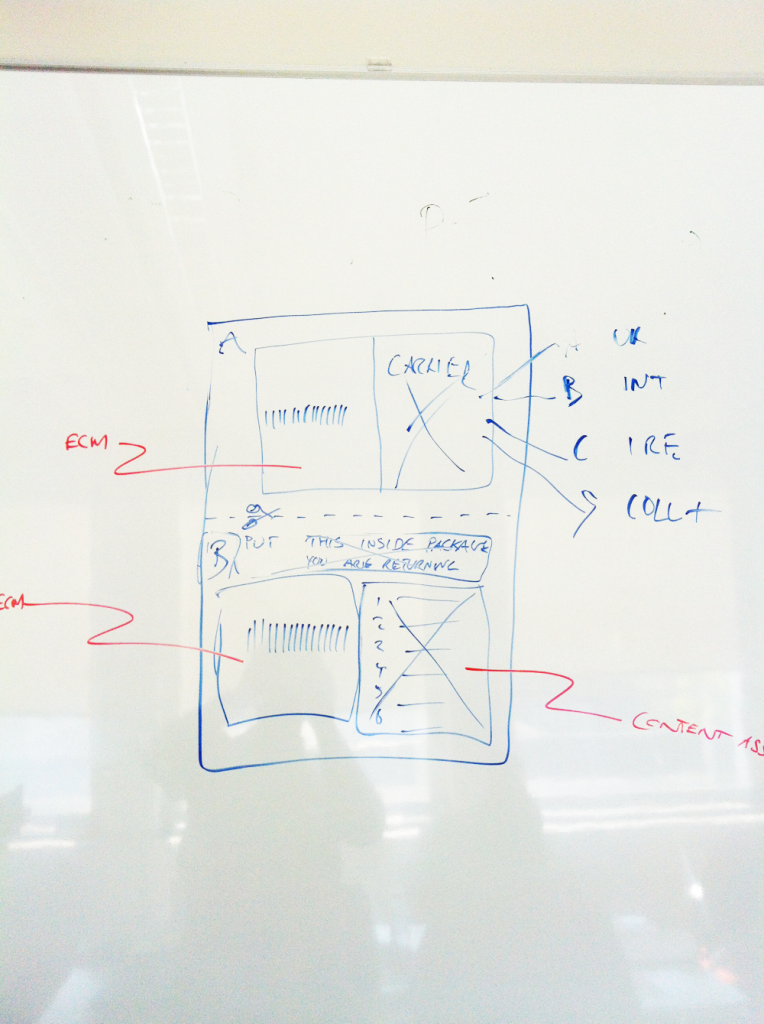 A
CARRIER
A UK
B INT
C IRE
COLL+
ECM
B PUT THIS INSIDE PACKAGE
YOU ARE RETURNING
ECM
1
2
3
4
5
6
CONTENT ASS